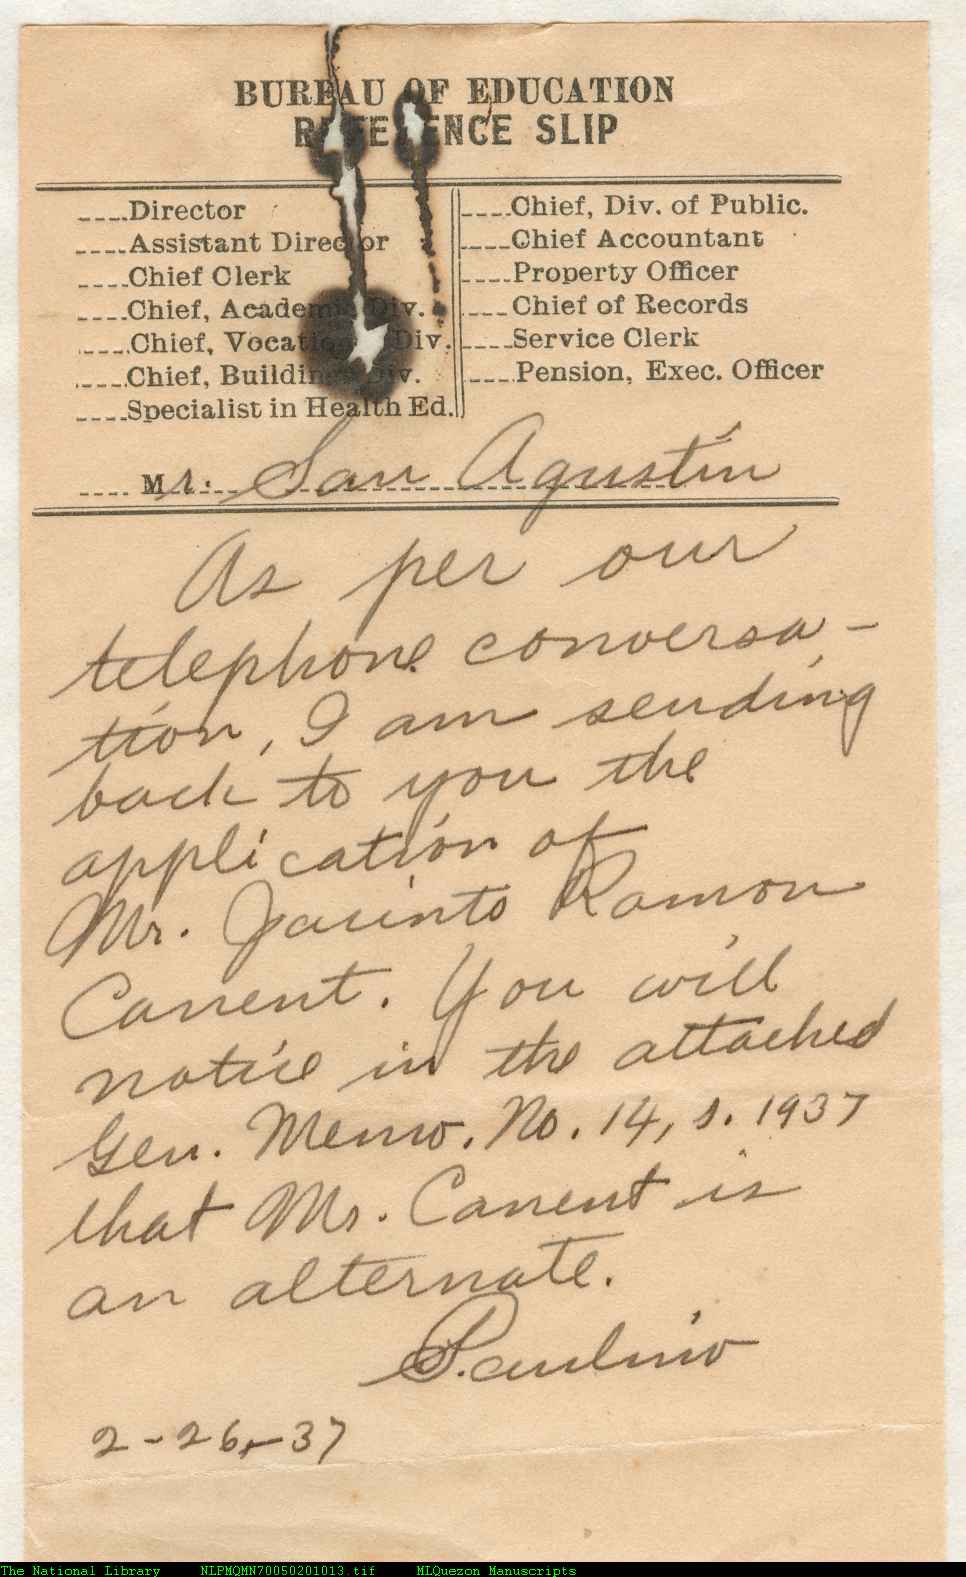 BUREAU OF EDUCATION
REFERENCE SLIP
----Director
----Assistant Director
----Chief Clerk
----Chief, Academic Div.
----Chief, Vocational Div.
----Chief, Buildings Div.
----Specialist in Health Ed.
----Chief, Div. of Public.
----Chief Accountant
----Property Officer
----Chief of Records
----Service Clerk
----Pension, Exec. Officer
---- Mr. San Agustin
As per our
telephone conversa-
tion, I am sending
back to you the
application of
Mr. Jacinto Ramon
Canent. You will
notice in the attached
Gen. Memo. No. 14, s. 1937
that Mr. Canent is
an alternate.
Paulino
2-26-37
The National Library NLPMQMN70050201013.tif MLQuezon Manuscripts